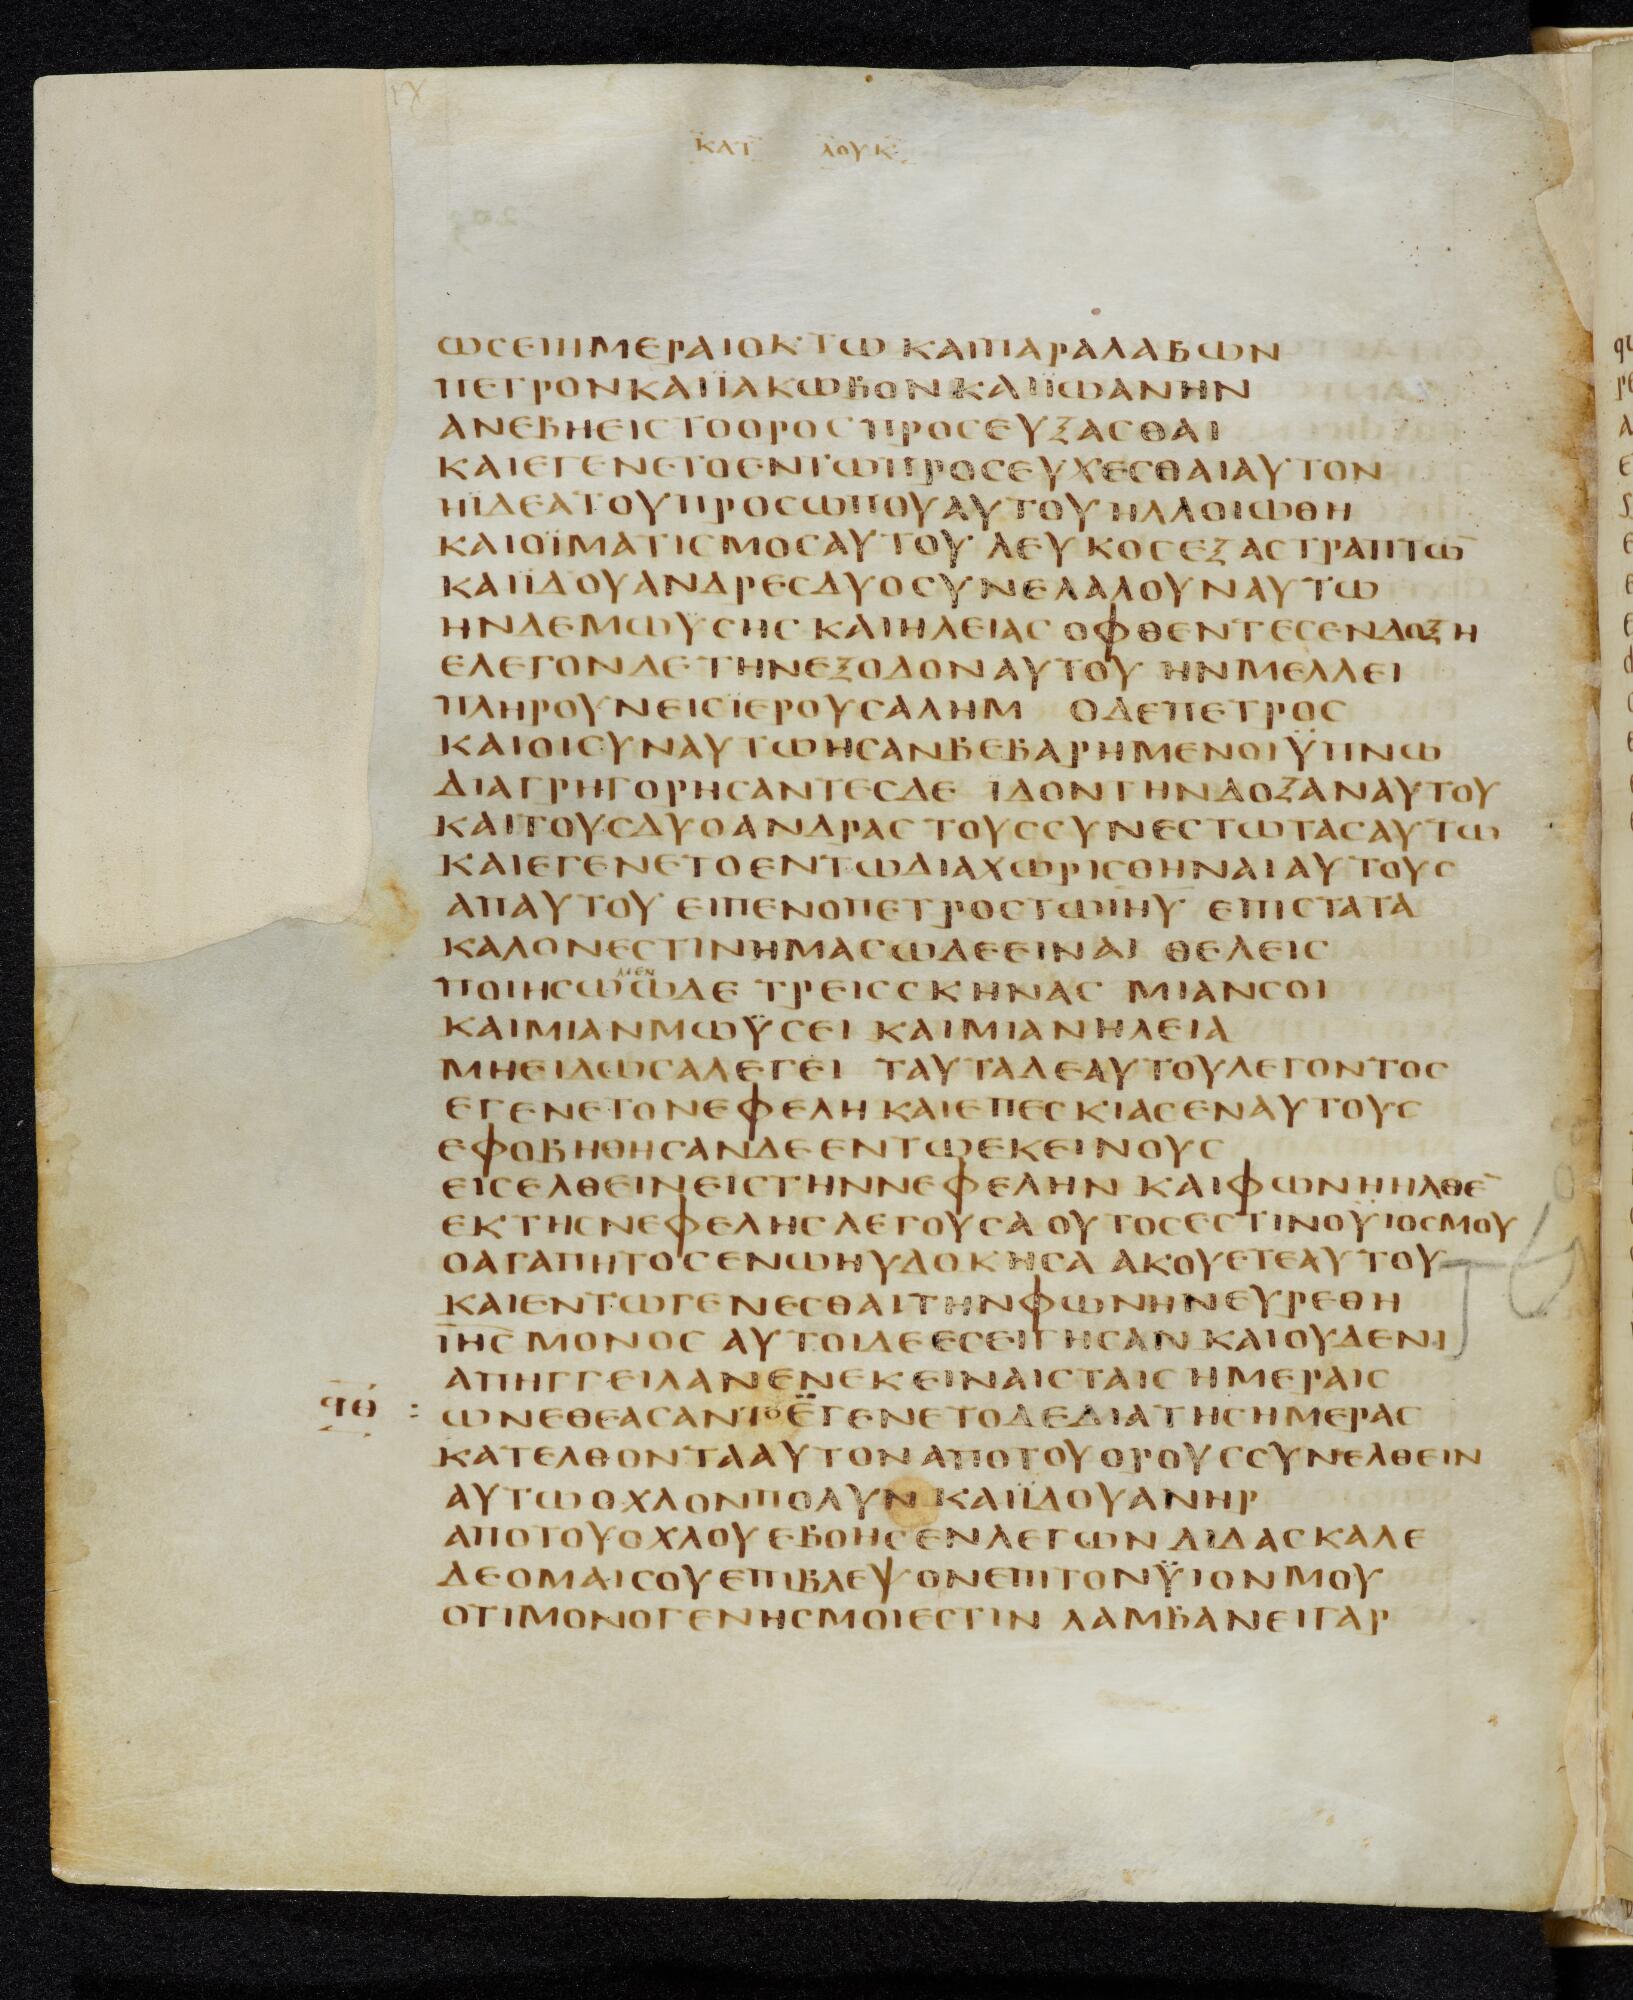 ΚΑΤ ΛΟΥΚ
ΩСΕΙΗΜΕΡΑΙΟΚΤΩ ΚΑΙΠΑΡΑΛΑΒΩΝ
ΠΕΤΡΟΝΚΑΙΪΑΚΩΒΟΝΚΑΙΪΩΑΝΗΝ
ΑΝΕΒΗΕΙСΤΟΟΡΟС ΠΡΟСΕΥΞΑСΘΑΙ
ΚΑΙΕΓΕΝΕΤΟΕΝΤΩΠΡΟСΕΥΧΕСΘΑΙΑΥΤΟΝ
ΗΪΔΕΑΤΟΥΠΡΟСΩΠΟΥΑΥΤΟΥ ΗΛΛΟΙΩΘΗ
ΚΑΙΟΪΜΑΤΙСΜΟСΑΥΤΟΥ ΛΕΥΚΟСΕΞΑСΤΡΑΠΤΩ̅
ΚΑΙΪΔΟΥΑΝΔΡΕСΔΥΟСΥΝΕΛΑΛΟΥΝΑΥΤΩ
ΗΝΔΕΜΩΫСΗС ΚΑΙΗΛΕΙΑС ΟΦΘΕΝΤΕСΕΝΔΟΞΗ
ΕΛΕΓΟΝΔΕΤΗΝΕΞΟΔΟΝΑΥΤΟΥ ΗΝΜΕΛΛΕΙ
ΠΛΗΡΟΥΝΕΙСΪΕΡΟΥСΑΛΗΜ ΟΔΕΠΕΤΡΟС
ΚΑΙΟΙСΥΝΑΥΤΩΗСΑΝΒΕΒΑΡΗΜΕΝΟΙΫΠΝΩ
ΔΙΑΓΡΗΓΟΡΗСΑΝΤΕСΔΕ ΪΔΟΝΤΗΝΔΟΞΑΝΑΥΤΟΥ
ΚΑΙΤΟΥСΔΥΟΑΝΔΡΑС ΤΟΥССΥΝΕСΤΩΤΑСΑΥΤΩ
ΚΑΙΕΓΕΝΕΤΟΕΝΤΩΔΙΑΧΩΡΙСΘΗΝΑΙΑΥΤΟΥС
ΑΠΑΥΤΟΥ ΕΙΠΕΝΟΠΕΤΡΟСΤΩΙ̅Η̅Υ̅ ΕΠΙСΤΑΤΑ
ΚΑΛΟΝΕСΤΙΝΗΜΑСΩΔΕΕΙΝΑΙ ΘΕΛΕΙС
ΜΕΝ
ΠΟΙΗСΩΩΔΕ ΤΡΕΙССΚΗΝΑС ΜΙΑΝСΟΙ
ΚΑΙΜΙΑΝΜΩΫСΕΙ ΚΑΙΜΙΑΝΗΛΕΙΑ
ΜΗΕΙΔΩСΑΛΕΓΕΙ ΤΑΥΤΑΔΕΑΥΤΟΥΛΕΓΟΝΤΟС
ΕΓΕΝΕΤΟΝΕΦΕΛΗ ΚΑΙΕΠΕСΚΙΑСΕΝΑΥΤΟΥС
ΕΦΟΒΗΘΗСΑΝΔΕΕΝΤΩΕΚΕΙΝΟΥС
ΕΙСΕΛΘΕΙΝΕΙСΤΗΝΝΕΦΕΛΗΝ ΚΑΙΦΩΝΗΗΛΘΕ̅
ΕΚΤΗСΝΕΦΕΛΗС ΛΕΓΟΥСΑ ΟΥΤΟСΕСΤΙΝΟΫΙΟСΜΟΥ
ΟΑΓΑΠΗΤΟСΕΝΩΗΥΔΟΚΗСΑ ΑΚΟΥΕΤΕΑΥΤΟΥ
ΚΑΙΕΝΤΩΓΕΝΕСΘΑΙΤΗΝΦΩΝΗΝΕΥΡΕΘΗ
Ι̅Η̅С̅ ΜΟΝΟС ΑΥΤΟΙΔΕΕСΕΙΓΗСΑΝ ΚΑΙΟΥΔΕΝΙ
ΑΠΗΓΓΕΙΛΑΝΕΝΕΚΕΙΝΑΙСΤΑΙС ΗΜΕΡΑΙС
ϤΘ : ΩΝΕΘΕΑСΑΝΤΟ ΕΓΕΝΕΤΟΔΕΔΙΑΤΗСΗΜΕΡΑС
ΚΑΤΕΛΘΟΝΤΑΑΥΤΟΝΑΠΟΤΟΥΟΡΟΥССΥΝΕΛΘΕΙΝ
ΑΥΤΩΟΧΛΟΝΠΟΛΥΝ ΚΑΙΪΔΟΥΑΝΗΡ
ΑΠΟΤΟΥΟΧΛΟΥΕΒΟΗСΕΝΛΕΓΩΝ ΔΙΔΑСΚΑΛΕ
ΔΕΟΜΑΙСΟΥΕΠΙΒΛΕΨΟΝΕΠΙΤΟΝΫΙΟΝΜΟΥ
ΟΤΙΜΟΝΟΓΕΝΗСΜΟΙΕСΤΙΝ ΛΑΜΒΑΝΕΙΓΑΡ